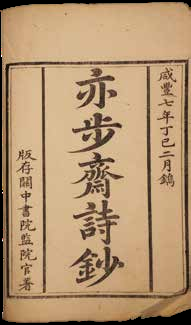 咸豐七年丁巳二月鐫
亦步齋詩鈔
版存關中書院監院官署